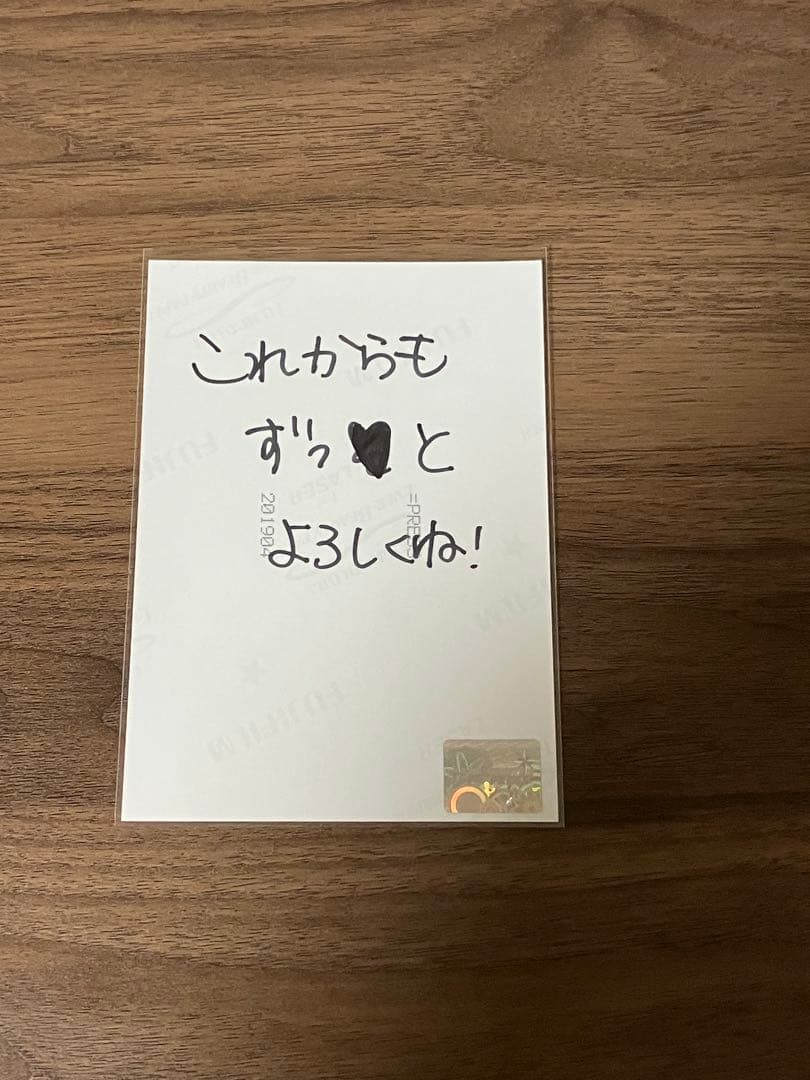 これからも
ずっ♥と
よろしくね!
201904
FUJIFILM
FUJIFILM